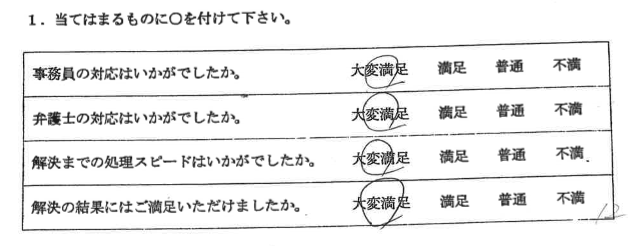 1．当てはまるものに〇を付けて下さい。
事務員の対応はいかがでしたか。 大変満足 満足 普通 不満
弁護士の対応はいかがでしたか。 大変満足 満足 普通 不満
解決までの処理スピードはいかがでしたか。 大変満足 満足 普通 不満
解決の結果にはご満足いただけましたか。 大変満足 満足 普通 不満